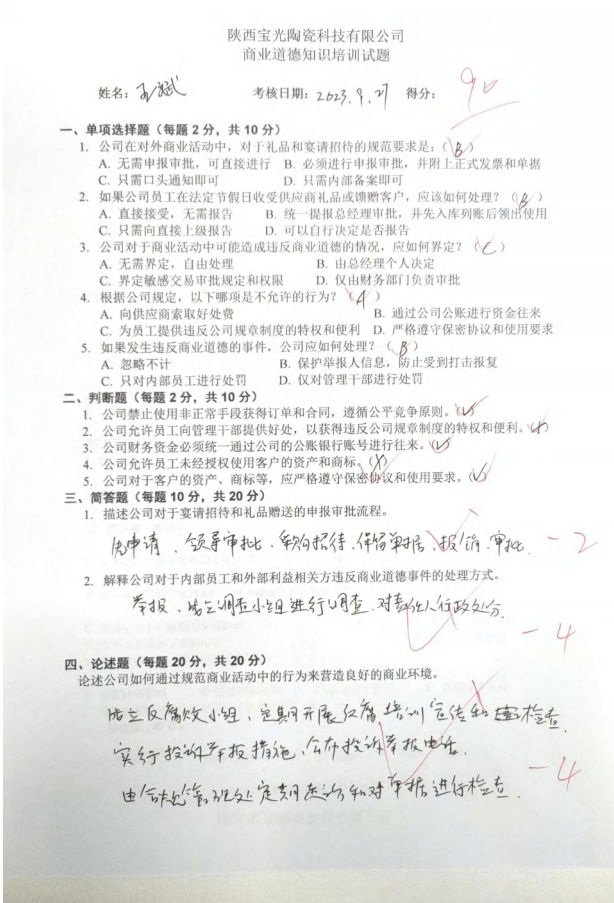 陕西宝光陶瓷科技有限公司
商业道德知识培训试题
姓名： 斌 考核日期：2023.9.27 得分： 90
一、单项选择题（每题 2 分，共 10 分）
1. 公司在对外商业活动中，对于礼品和宴请招待的规范要求是：（B）
A. 无需申报审批，可直接进行 B. 必须进行申报审批，并附上正式发票和单据
C. 只需口头通知即可 D. 只需内部备案即可
2. 如果公司员工在法定节假日收受供应商礼品或馈赠客户，应该如何处理？（B）
A. 直接接受，无需报告 B. 统一提报总经理审批，并先入库列账后领出使用
C. 只需向直接上级报告 D. 可以自行决定是否报告
3. 公司对于商业活动中可能造成违反商业道德的情况，应如何界定？（C）
A. 无需界定，自由处理 B. 由总经理个人决定
C. 界定敏感交易审批规定和权限 D. 仅由财务部门负责审批
4. 根据公司规定，以下哪项是不允许的行为？（A）
A. 向供应商索取好处费 B. 通过公司公账进行资金往来
C. 为员工提供违反公司规章制度的特权和便利 D. 严格遵守保密协议和使用要求
5. 如果发生违反商业道德的事件，公司应如何处理？（B）
A. 忽略不计 B. 保护举报人信息，防止受到打击报复
C. 只对内部员工进行处罚 D. 仅对管理干部进行处罚
二、判断题（每题 2 分，共 10 分）
1. 公司禁止使用非正常手段获得订单和合同，遵循公平竞争原则。（√）
2. 公司允许员工向管理干部提供好处，以获得违反公司规章制度的特权和便利。（×）
3. 公司财务资金必须统一通过公司的公账银行账号进行往来。（√）
4. 公司允许员工未经授权使用客户的资产和商标。（×）
5. 公司对于客户的资产、商标等，应严格遵守保密协议和使用要求。（√）
三、简答题（每题 10 分，共 20 分）
1. 描述公司对于宴请招待和礼品赠送的申报审批流程。
先申请、领导审批、采购招待、保留单据、报销、审批. -2
2. 解释公司对于内部员工和外部利益相关方违反商业道德事件的处理方式。
举报、成立调查小组进行调查. 对责任人行政处分. -4
四、论述题（每题 20 分，共 20 分）
论述公司如何通过规范商业活动中的行为来营造良好的商业环境。
成立反腐败小组、定期开展反腐培训宣传和检查.
实行投诉举报措施、公布投诉举报电话.
由 管理处定期 和对单据进行检查. -4